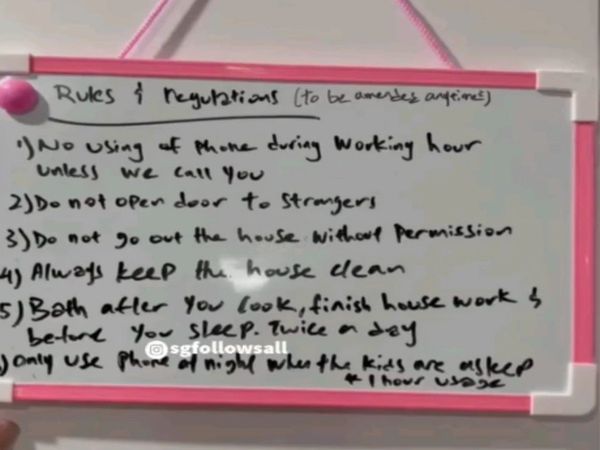 Rules & regulations (to be amended anytimes)
1) No using of Phone during Working hour
unless we call you
2) Do not open door to Strangers
3) Do not go out the house without Permission
4) Always keep the house clean
5) Bath after You Cook, finish house work &
before you sleep. Twice a day
) Only use Phone at night when the kids are asleep
* 1 hour usage
@sgfollowsall